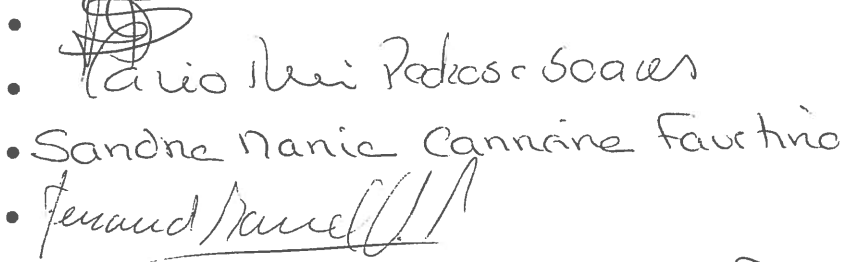 Mário Rui Pedrosa Soares
Sandra Maria Carreira Faustino
Fernando Manuel